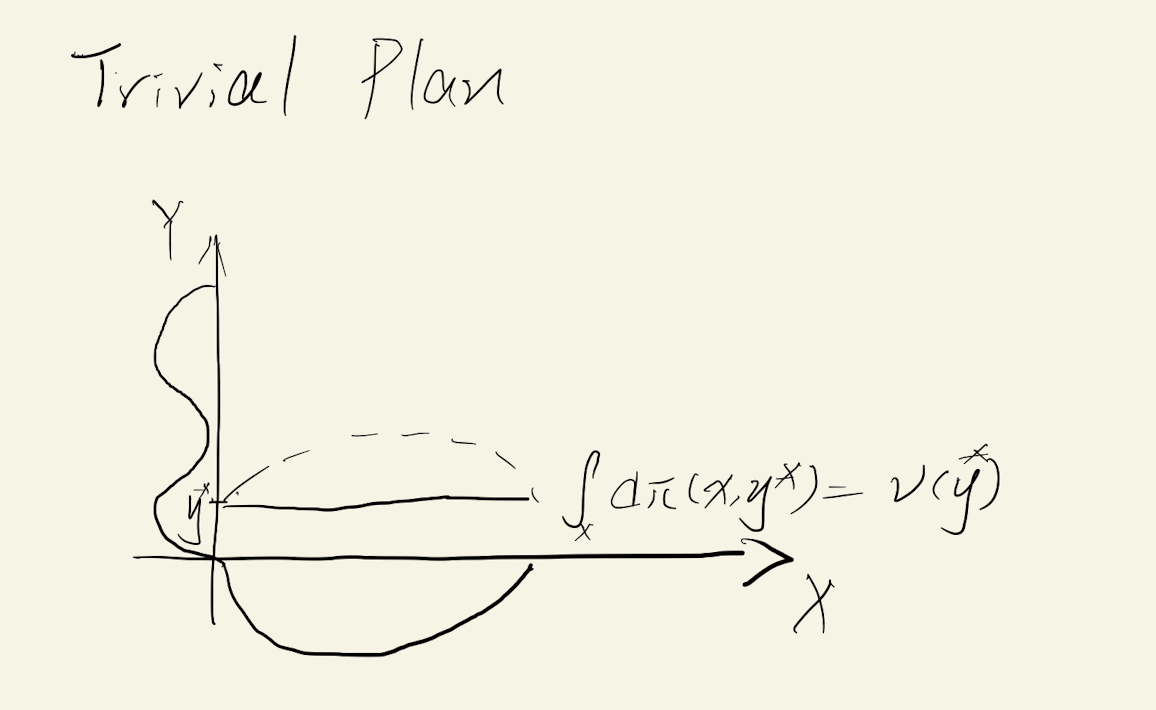 Trivial Plan
Y
y*
∫_x dπ(x,y*) = ν(y*)
X